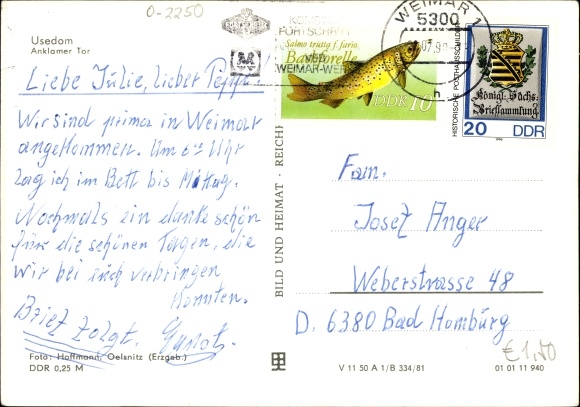 O-2250
Usedom
Anklamer Tor
WEIMAR 1
5300
Salmo trutta f. fario
Bachforelle
DDR 10
HISTORISCHE POSTHAUSSCHILDER
Königl. Sächs.
Briefsammlung
20 DDR
Liebe Julie, lieber Peppi!
Wir sind prima in Weimar
angekommen. Um 6 Uhr
lag ich im Bett bis Mittag.
Nochmals ein danke schön
für die schönen Tagen, die
wir bei euch verbringen
konnten.
Brief folgt.
Fam.
Josef Anger
Weberstrasse 48
D. 6380 Bad Homburg
BILD UND HEIMAT · REICHENBACH
Foto: Hoffmann, Oelsnitz (Erzgeb.)
DDR 0,25 M
V 11 50 A 1/B 334/81
01 01 11 940
€1,50